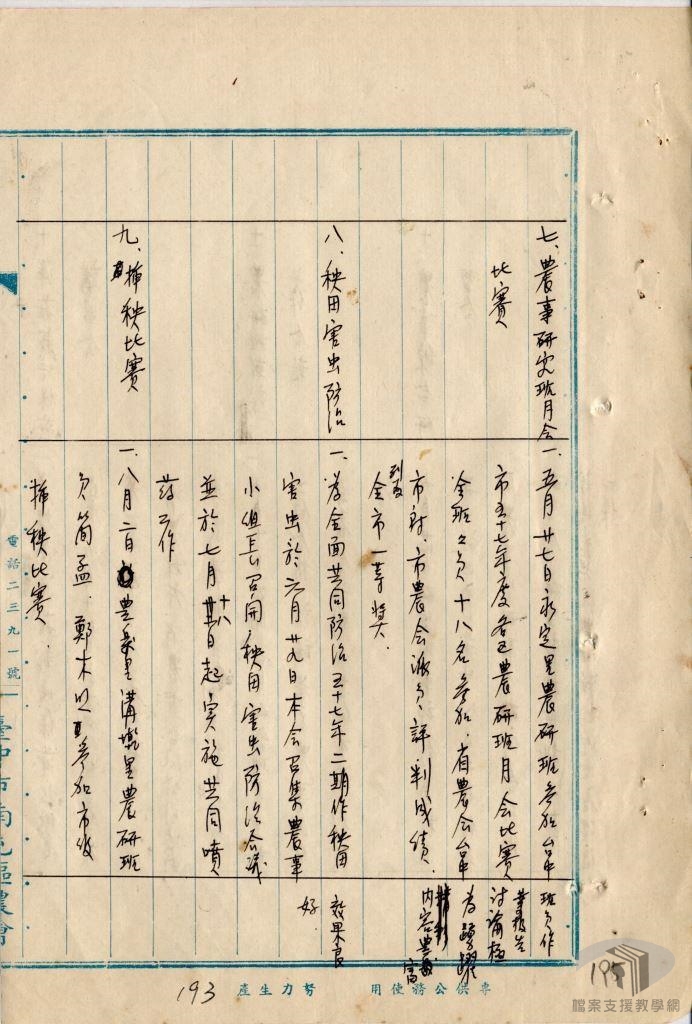 七、農事研究班月会
比賽
一、五月廿七日永定里農研班参加台中
市五十七年度各区農研班月会比賽
全班班員十八名参加、省農会台中
市府、市農会派員評判成績、
到家
全市一等奬、
班員作
業報告
討論極
為踴躍
内容豊富
八、秧田害虫防治
一、為全面共同防治五十七年二期作秧田
害虫於六月廿九日本会召集農事
小組長召開秧田害虫防治会議
並於七月十八日起実施共同噴
葯工作
效果良
好
九、插秧比賽
一、八月二日豊楽里溝墘里農研班
員簡孟、鄭木 参加市級
插秧比賽、
電話二三九一號
臺中市南屯區農會
專供公務使用
努力生產
193
195
檔案支援教學網